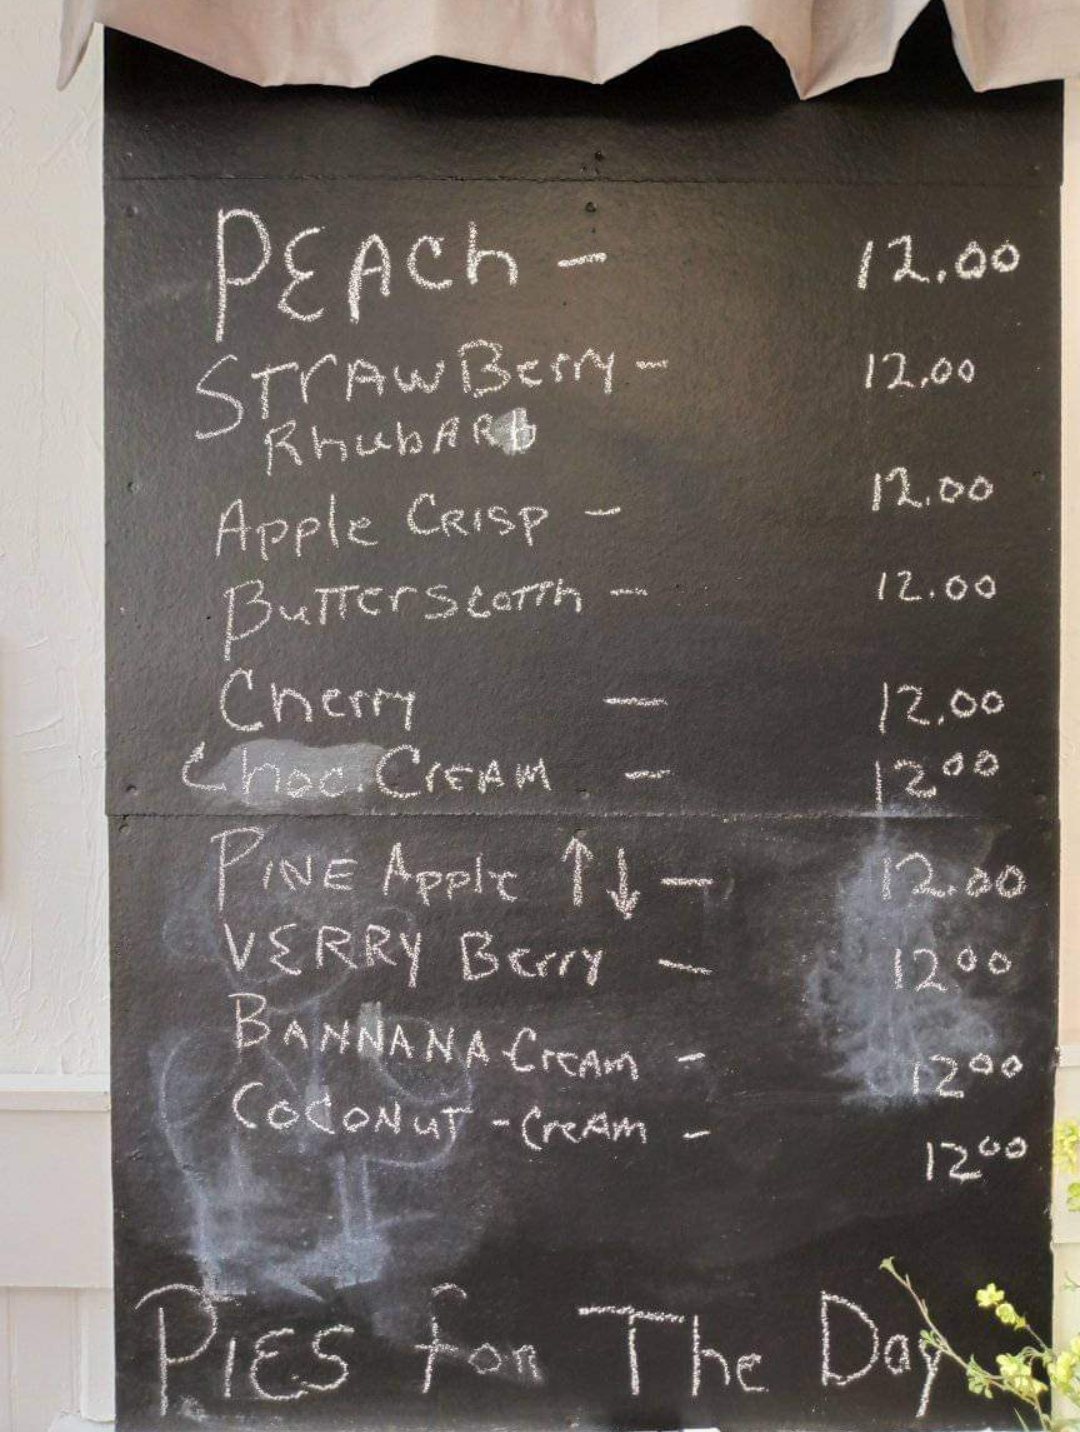 PEACh - 12.00
STrAWBerry - 12.00
RhubARb
Apple CRISp - 12.00
ButterscoTTh - 12.00
Cherry - 12.00
Choc. CrEAM - 12 00
PINE Apple ↑↓ - 12.00
VERRY Berry - 12 00
BANNANA-CreAm - 12 00
COCONuT - CreAm - 12 00
PIES for The Day